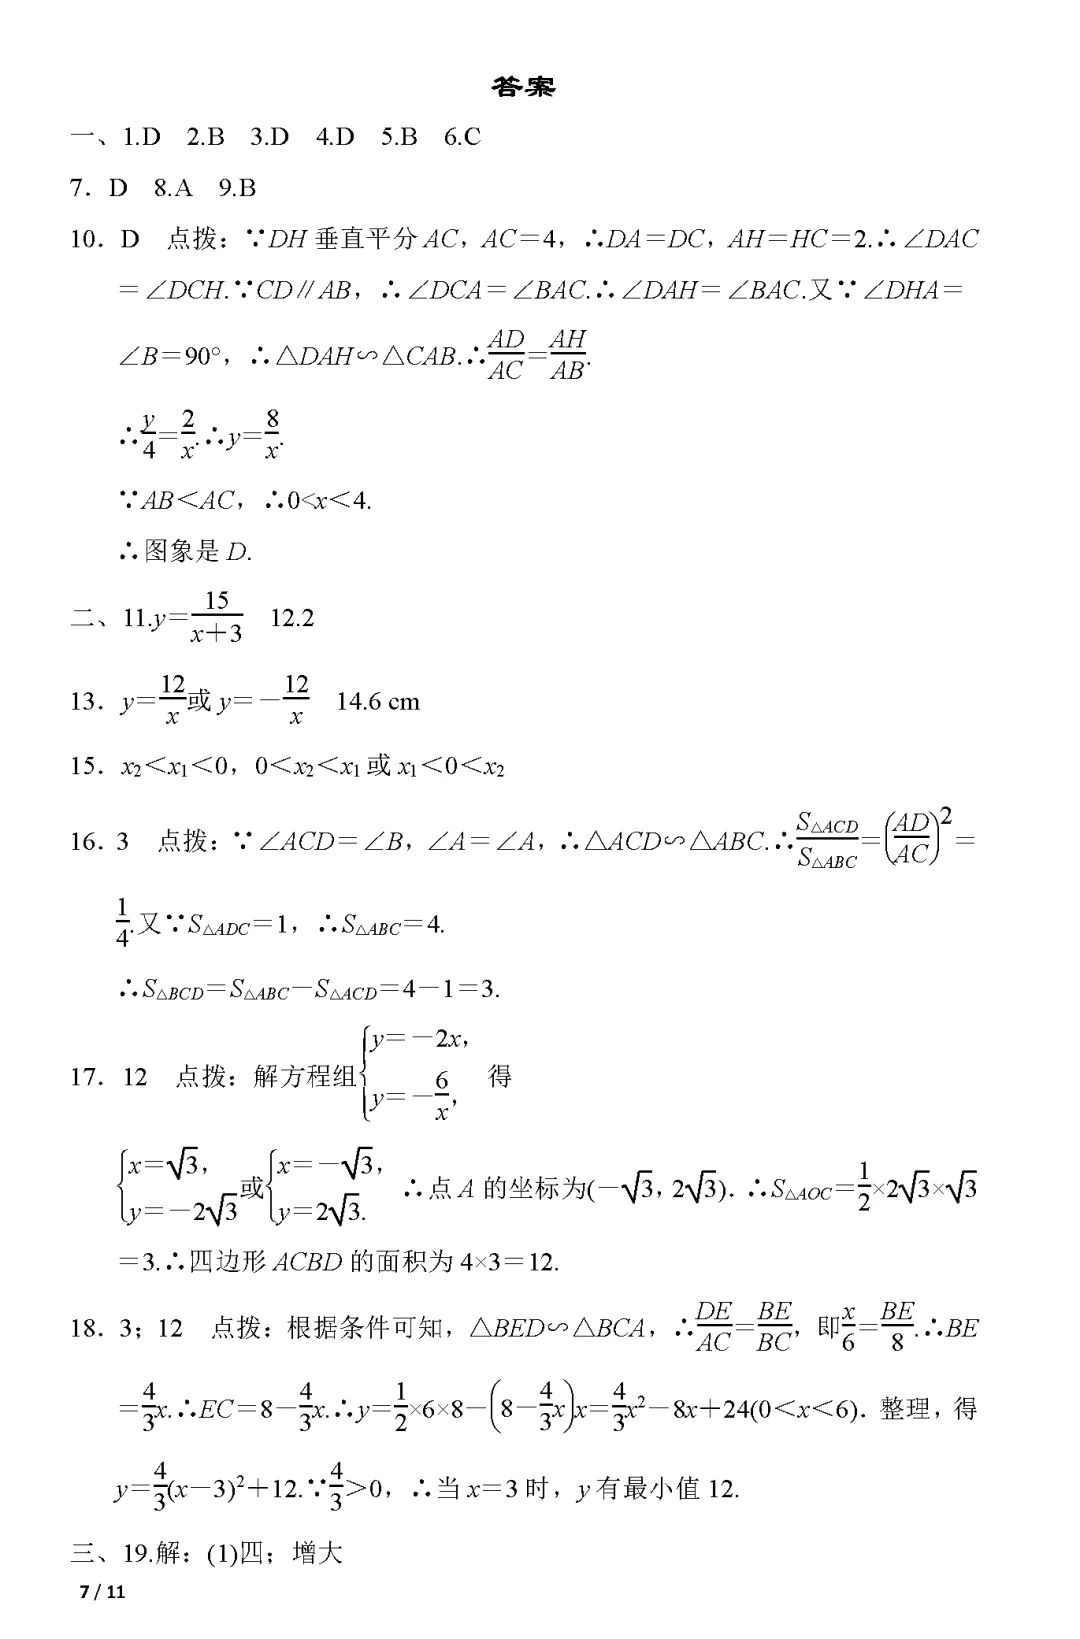 答案
一、1.D 2.B 3.D 4.D 5.B 6.C
7．D 8.A 9.B
10．D 点拨：∵DH 垂直平分 AC，AC＝4，∴DA＝DC，AH＝HC＝2.∴∠DAC
＝∠DCH.∵CD∥AB，∴∠DCA＝∠BAC.∴∠DAH＝∠BAC.又∵∠DHA＝
∠B＝90°，∴△DAH∽△CAB.∴AD/AC＝AH/AB.
∴y/4＝2/x.∴y＝8/x.
∵AB＜AC，∴0<x＜4.
∴图象是 D.
二、11.y＝15/(x＋3) 12.2
13．y＝12/x或 y＝－12/x 14.6 cm
15．x₂＜x₁＜0，0＜x₂＜x₁ 或 x₁＜0＜x₂
16．3 点拨：∵∠ACD＝∠B，∠A＝∠A，∴△ACD∽△ABC.∴S△ACD/S△ABC＝(AD/AC)²＝
1/4.又∵S△ADC＝1，∴S△ABC＝4.
∴S△BCD＝S△ABC－S△ACD＝4－1＝3.
17．12 点拨：解方程组{y＝－2x，y＝－6/x， 得
{x＝√3，y＝－2√3 或{x＝－√3，y＝2√3. ∴点 A 的坐标为(－√3，2√3)．∴S△AOC＝1/2×2√3×√3
＝3.∴四边形 ACBD 的面积为 4×3＝12.
18．3；12 点拨：根据条件可知，△BED∽△BCA，∴DE/AC＝BE/BC，即x/6＝BE/8.∴BE
＝4/3x.∴EC＝8－4/3x.∴y＝1/2×6×8－(8－4/3x)x＝4/3x²－8x＋24(0＜x＜6)．整理，得
y＝4/3(x－3)²＋12.∵4/3＞0，∴当 x＝3 时，y 有最小值 12.
三、19.解：(1)四；增大
7 / 11